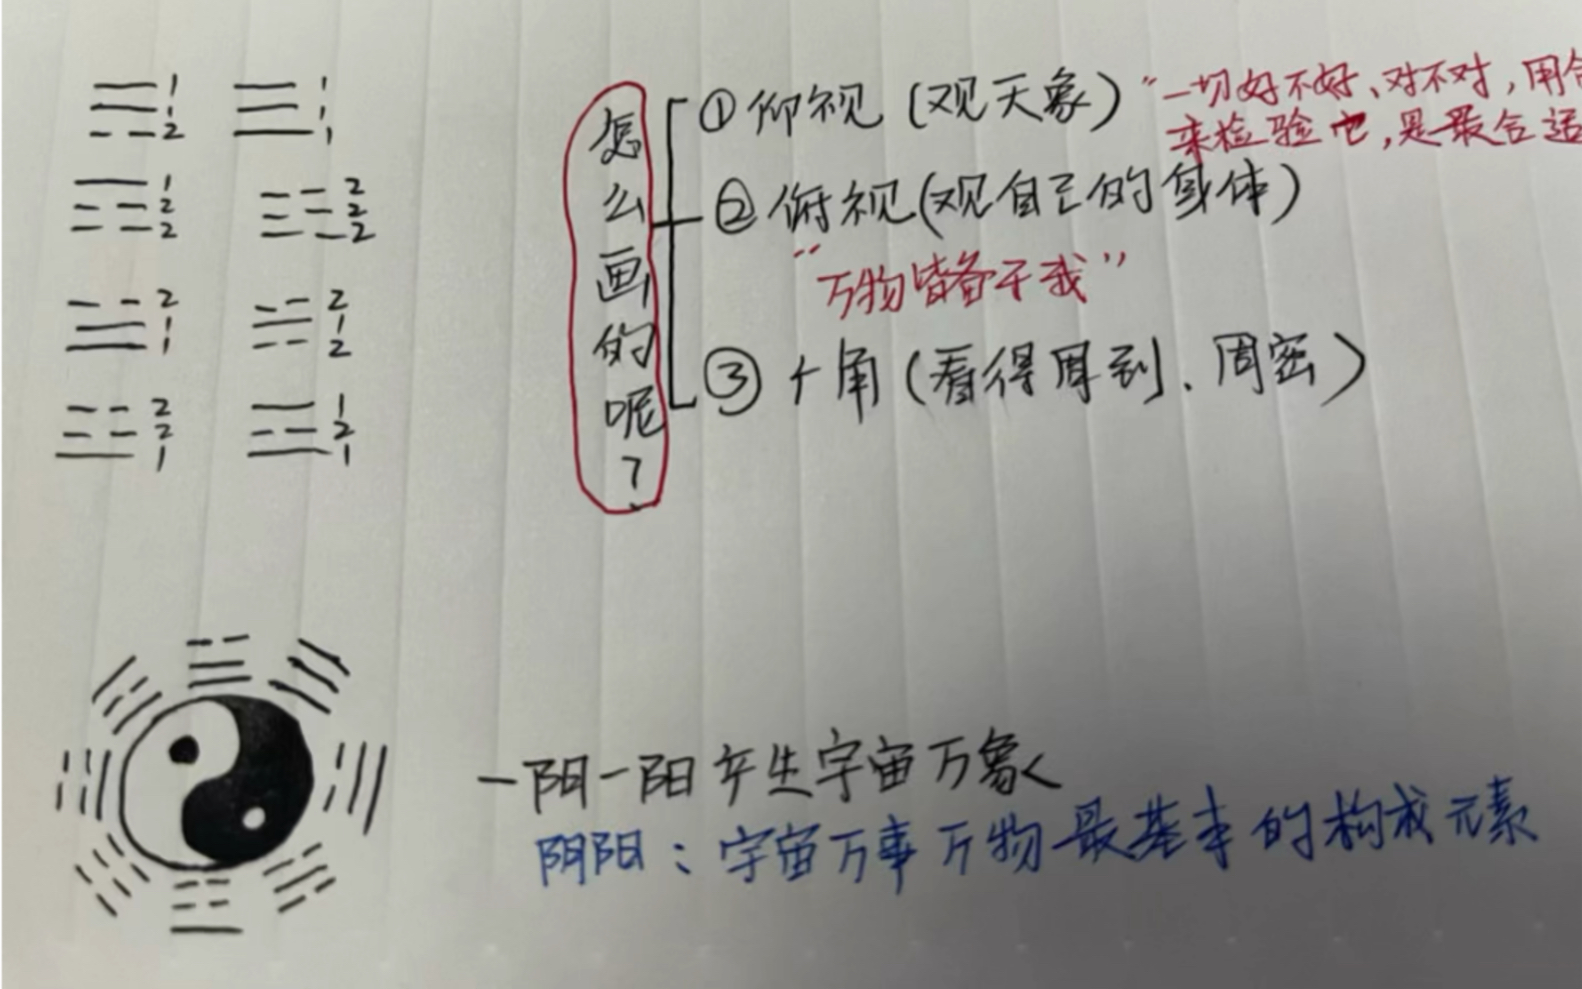 1 1
1 1
2 1
1 2
2 2
2 2
2 2
1 1
1 2
2 1
2 2
1 1
怎么画的呢?
①仰视(观天象)
"一切好不好、对不对,用合
来检验它,是最合适
②俯视(观自己的身体)
"万物皆备于我"
③十角(看得周到、周密)
一阴一阳产生宇宙万象
阴阳:宇宙万事万物最基本的构成元素